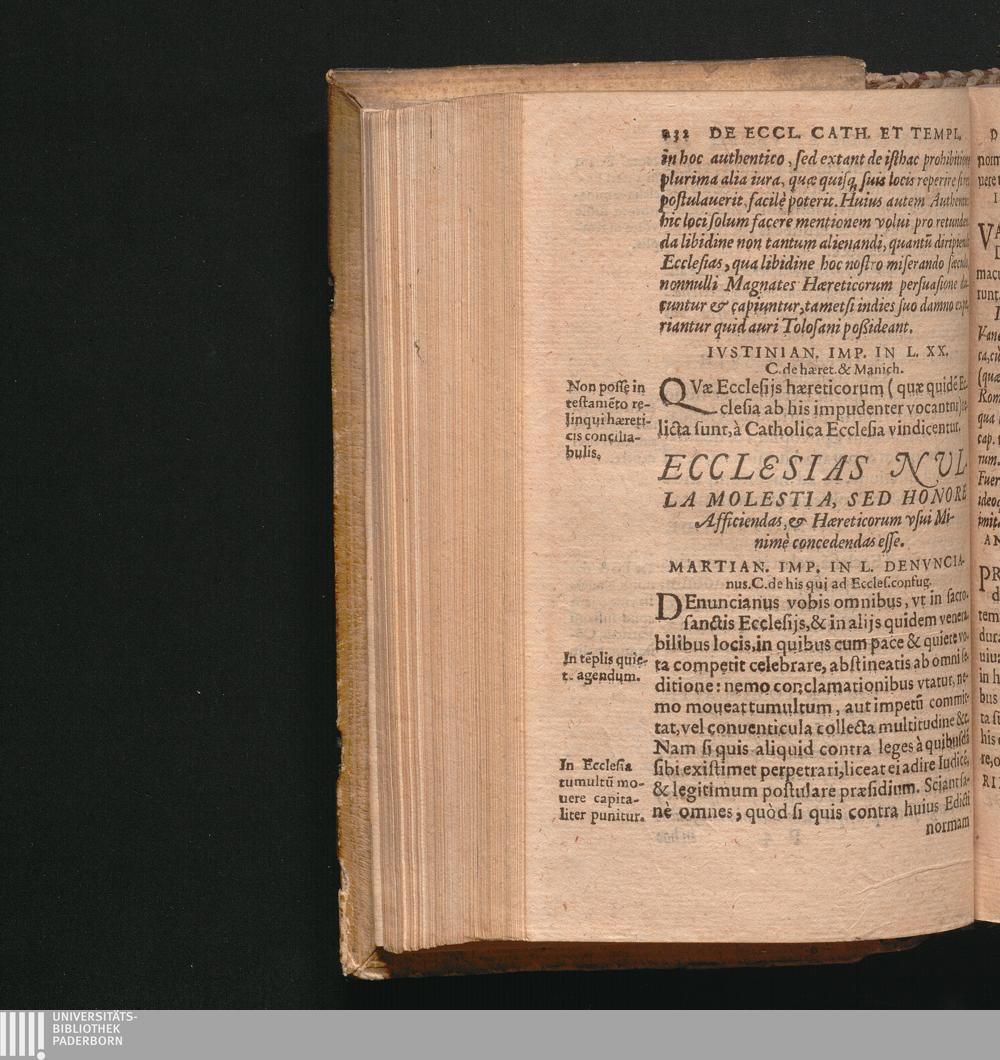 232 DE ECCL. CATH. ET TEMPL.
in hoc authentico, sed extant de isthac prohibitione
plurima alia iura, quæ quisq; suis locis reperire si res
postulauerit, facilè poterit. Huius autem Authentic
hic loci solum facere mentionem volui pro retunden
da libidine non tantum alienandi, quantū diripiendi
Ecclesias, qua libidine hoc nostro miserando sæculo
nonnulli Magnates Hæreticorum persuasione du
cuntur & capiuntur, tametsi indies suo damno expe
riantur quid auri Tolosani poßideant.
IVSTINIAN. IMP. IN L. XX.
C. de hæret. & Manich.
Non posse in
testamēto re-
linqui hæreti-
cis concilia-
bulis.
QVæ Ecclesijs hæreticorum ( quæ quidē Ec
clesia ab his impudenter vocantur)
licta sunt, à Catholica Ecclesia vindicentur.
ECCLESIAS NVL
LA MOLESTIA, SED HONORE
Afficiendas, & Hæreticorum vsui Mi-
nimè concedendas esse.
MARTIAN. IMP. IN L. DENVNCIA-
nus. C. de his qui ad Eccles. confug.
DEnuncianus vobis omnibus, vt in sacro-
sanctis Ecclesijs, & in alijs quidem venera-
bilibus locis, in quibus cum pace & quiete vo-
ta competit celebrare, abstineatis ab omni se-
ditione: nemo conclamationibus vtatur, ne-
mo moueat tumultum, aut impetū commit-
tat, vel conuenticula collecta multitudine &c.
Nam si quis aliquid contra leges à quibusdā
sibi existimet perpetrari, liceat ei adire Iudicē,
& legitimum postulare præsidium. Sciant sa-
nè omnes, quòd si quis contra huius Edicti
normam
In tēplis quie-
t. agendum.
In Ecclesia
tumultū mo-
uere capita-
liter punitur.
D
norm
uere
VA
macu
runt
Vand
(quæ
Rom
qua
cap.
rum.
Fuer
ideoq
imit
AN
PR
tem
dura
uiu
in h
bus
ta si
his
re, o
RI
UNIVERSITÄTS-
BIBLIOTHEK
PADERBORN